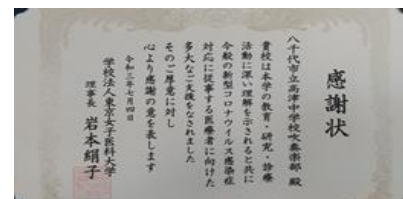 感謝状
八千代市立高津中学校吹奏楽部 殿
貴校は本学の教育・研究・診療
活動に深い理解を示されると共に
今般の新型コロナウイルス感染症
対応に従事する医療者に向けた
多大なご支援をなされました
そのご厚意に対し
心より感謝の意を表します
令和三年七月四日
学校法人東京女子医科大学
理事長 岩本絹子